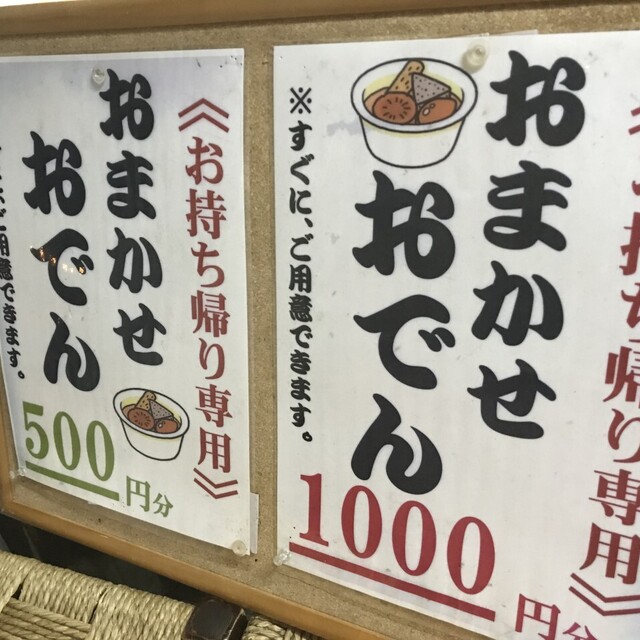 《お持ち帰り専用》
おまかせ
おでん
※すぐに、ご用意できます。
1000円分
《お持ち帰り専用》
おまかせ
おでん
ご用意できます。
500円分